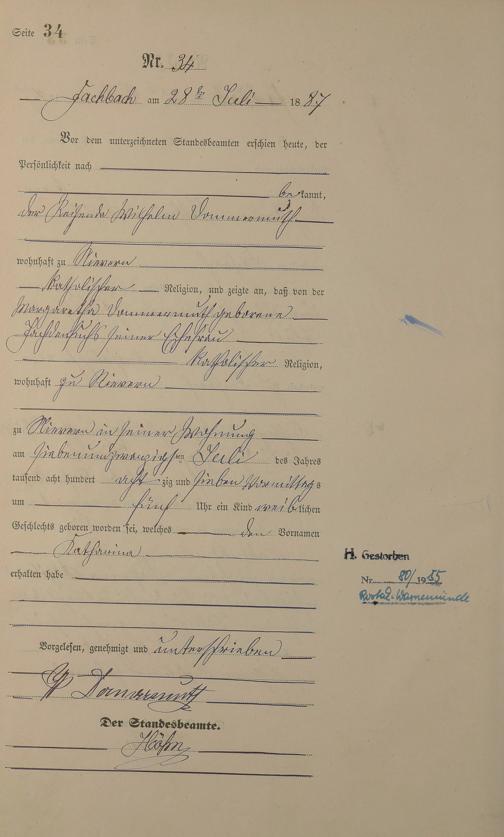 Seite 34
Nr. 34
Fachbach am 28ten Juli 1887
Vor dem unterzeichneten Standesbeamten erschien heute, der
Persönlichkeit nach
be kannt,
der Wilhelm Dommermuth
wohnhaft zu Nievern
katholischer Religion, und zeigte an, daß von der
Margaretha Dommermuth geborene
seiner Ehefrau
katholischer Religion,
wohnhaft zu Nievern
zu Nievern in seiner Wohnung
am siebenundzwanzigsten Juli des Jahres
tausend acht hundert acht zig und sieben Vormittags
um fünf Uhr ein Kind weiblichen
Geschlechts geboren worden sei, welches den Vornamen
Katharina
erhalten habe
Vorgelesen, genehmigt und unterschrieben
W Dommermuth
Der Standesbeamte.
Höhn
H. Gestorben
Nr. 80/1955
Rostock-Warnemünde